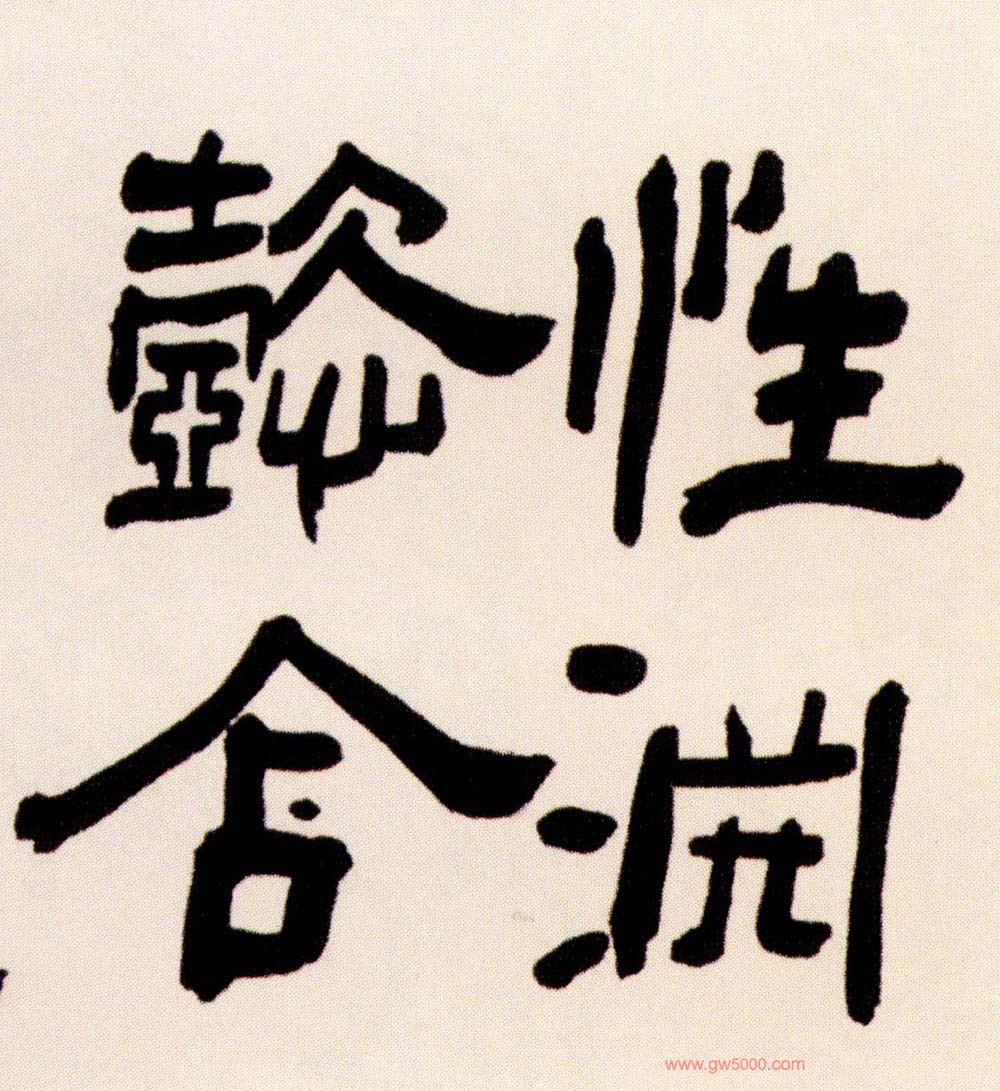 性渊
懿含
www.gw5000.com